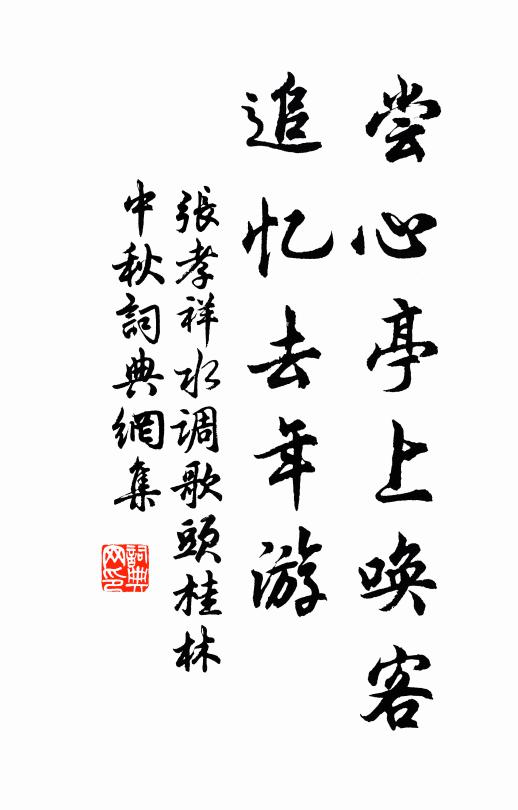 尝心亭上唤客
追忆去年游
張孝祥水调歌頭桂林
中秋詞典網集
詞典
网印